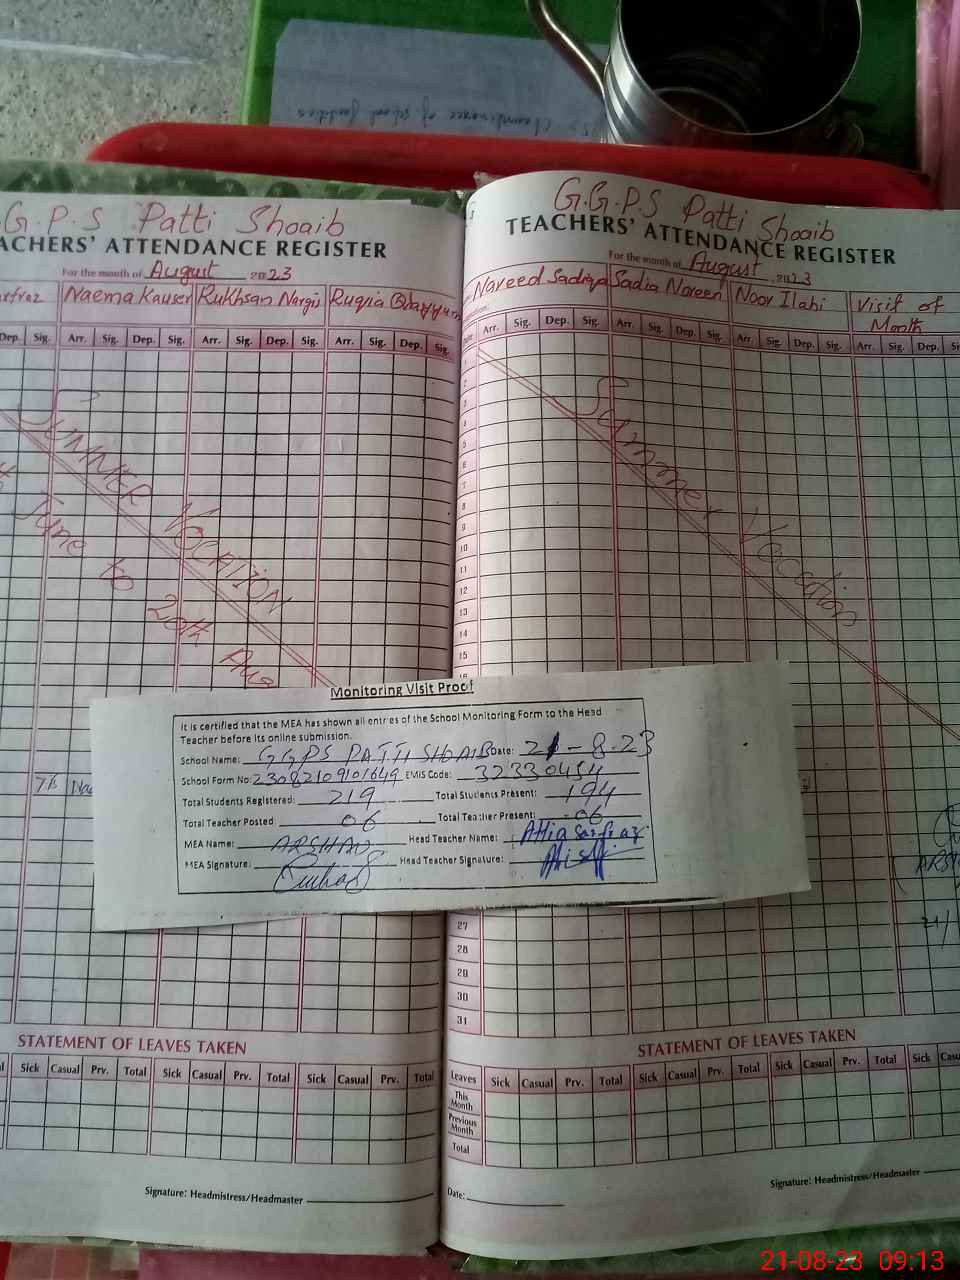 G.P.S Patti Shoaib
ACHERS' ATTENDANCE REGISTER
For the month of August 2023
Naema Kauser Rukhsan Nargis Ruqia Qayyum
Dep. Sig. Arr. Sig. Dep. Sig. Arr. Sig. Dep. Sig. Arr. Sig. Dep. Sig.
SUMMER VOCATION
June to 20th Aug
G.G.P.S Patti Shoaib
TEACHERS' ATTENDANCE REGISTER
For the month of August 2023
Naveed Sadiqa Sadia Noreen Noor Ilahi Visit of
Month
Arr. Sig. Dep. Sig. Arr. Sig. Dep. Sig. Arr. Sig. Dep. Sig. Arr. Sig. Dep.
1
2
3
4
5
6
7
8
9
10
11
12
13
14
15
Summer Vocation
Monitoring Visit Proof
It is certified that the MEA has shown all entries of the School Monitoring Form to the Head
Teacher before its online submission.
School Name: GGPS PATTI SHOAIB Date: 21-8-23
School Form No: 23082109101649 EMIS Code: 32330454
Total Students Registered: 219 Total Students Present: 194
Total Teacher Posted: 06 Total Teacher Present: 06
MEA Name: ARSHAD Head Teacher Name: Attia Sarfraz
MEA Signature: Head Teacher Signature:
27
28
29
30
31
STATEMENT OF LEAVES TAKEN
Sick Casual Prv. Total Sick Casual Prv. Total Sick Casual Prv. Total
Signature: Headmistress/Headmaster
STATEMENT OF LEAVES TAKEN
Leaves Sick Casual Prv. Total Sick Casual Prv. Total Sick Casual Prv. Total Sick
This
Month
Previous
Month
Total
Date:
Signature: Headmistress/Headmaster
21-08-23 09:13